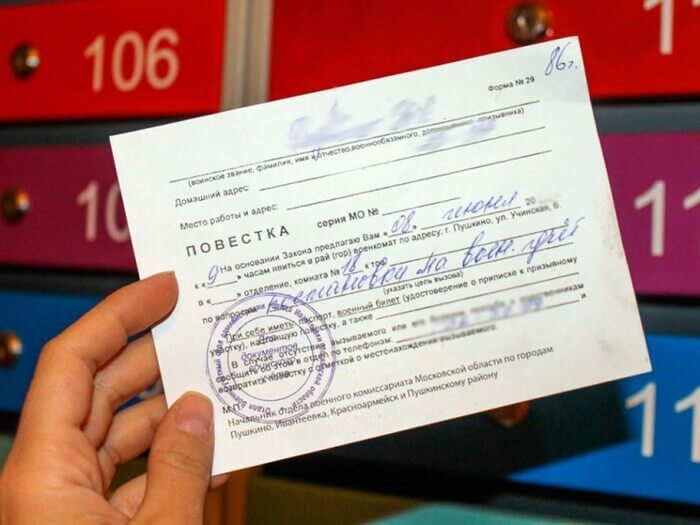 106
11
10
11
116
11
Форма № 29
86г.
(воинское звание, фамилия, имя отчество, военнообязанного, призывника)
Домашний адрес:
Место работы и адрес:
серия МО №
ПОВЕСТКА
На основании Закона предлагаю Вам «08» июня 20
к «9» часам явиться в рай (гор) военкомат по адресу: г. Пушкино, ул. Учинская, 6.
в « » отделение, комната № 18 к тов.
по вопросу постановки на воин. учёт
(указать цель вызова)
При себе иметь: паспорт, военный билет (удостоверение о приписке к призывному
участку), настоящую повестку, а также
В случае отсутствия вызываемого или его и
сообщить об этом в отдел по телефонам:
возвратить повестку с отметкой о местонахождении вызываемого.
Для документов воинского учета
М.П.
Начальник отдела военного комиссариата Московской области по городам
Пушкино, Ивантеевка, Красноармейск и Пушкинскому району